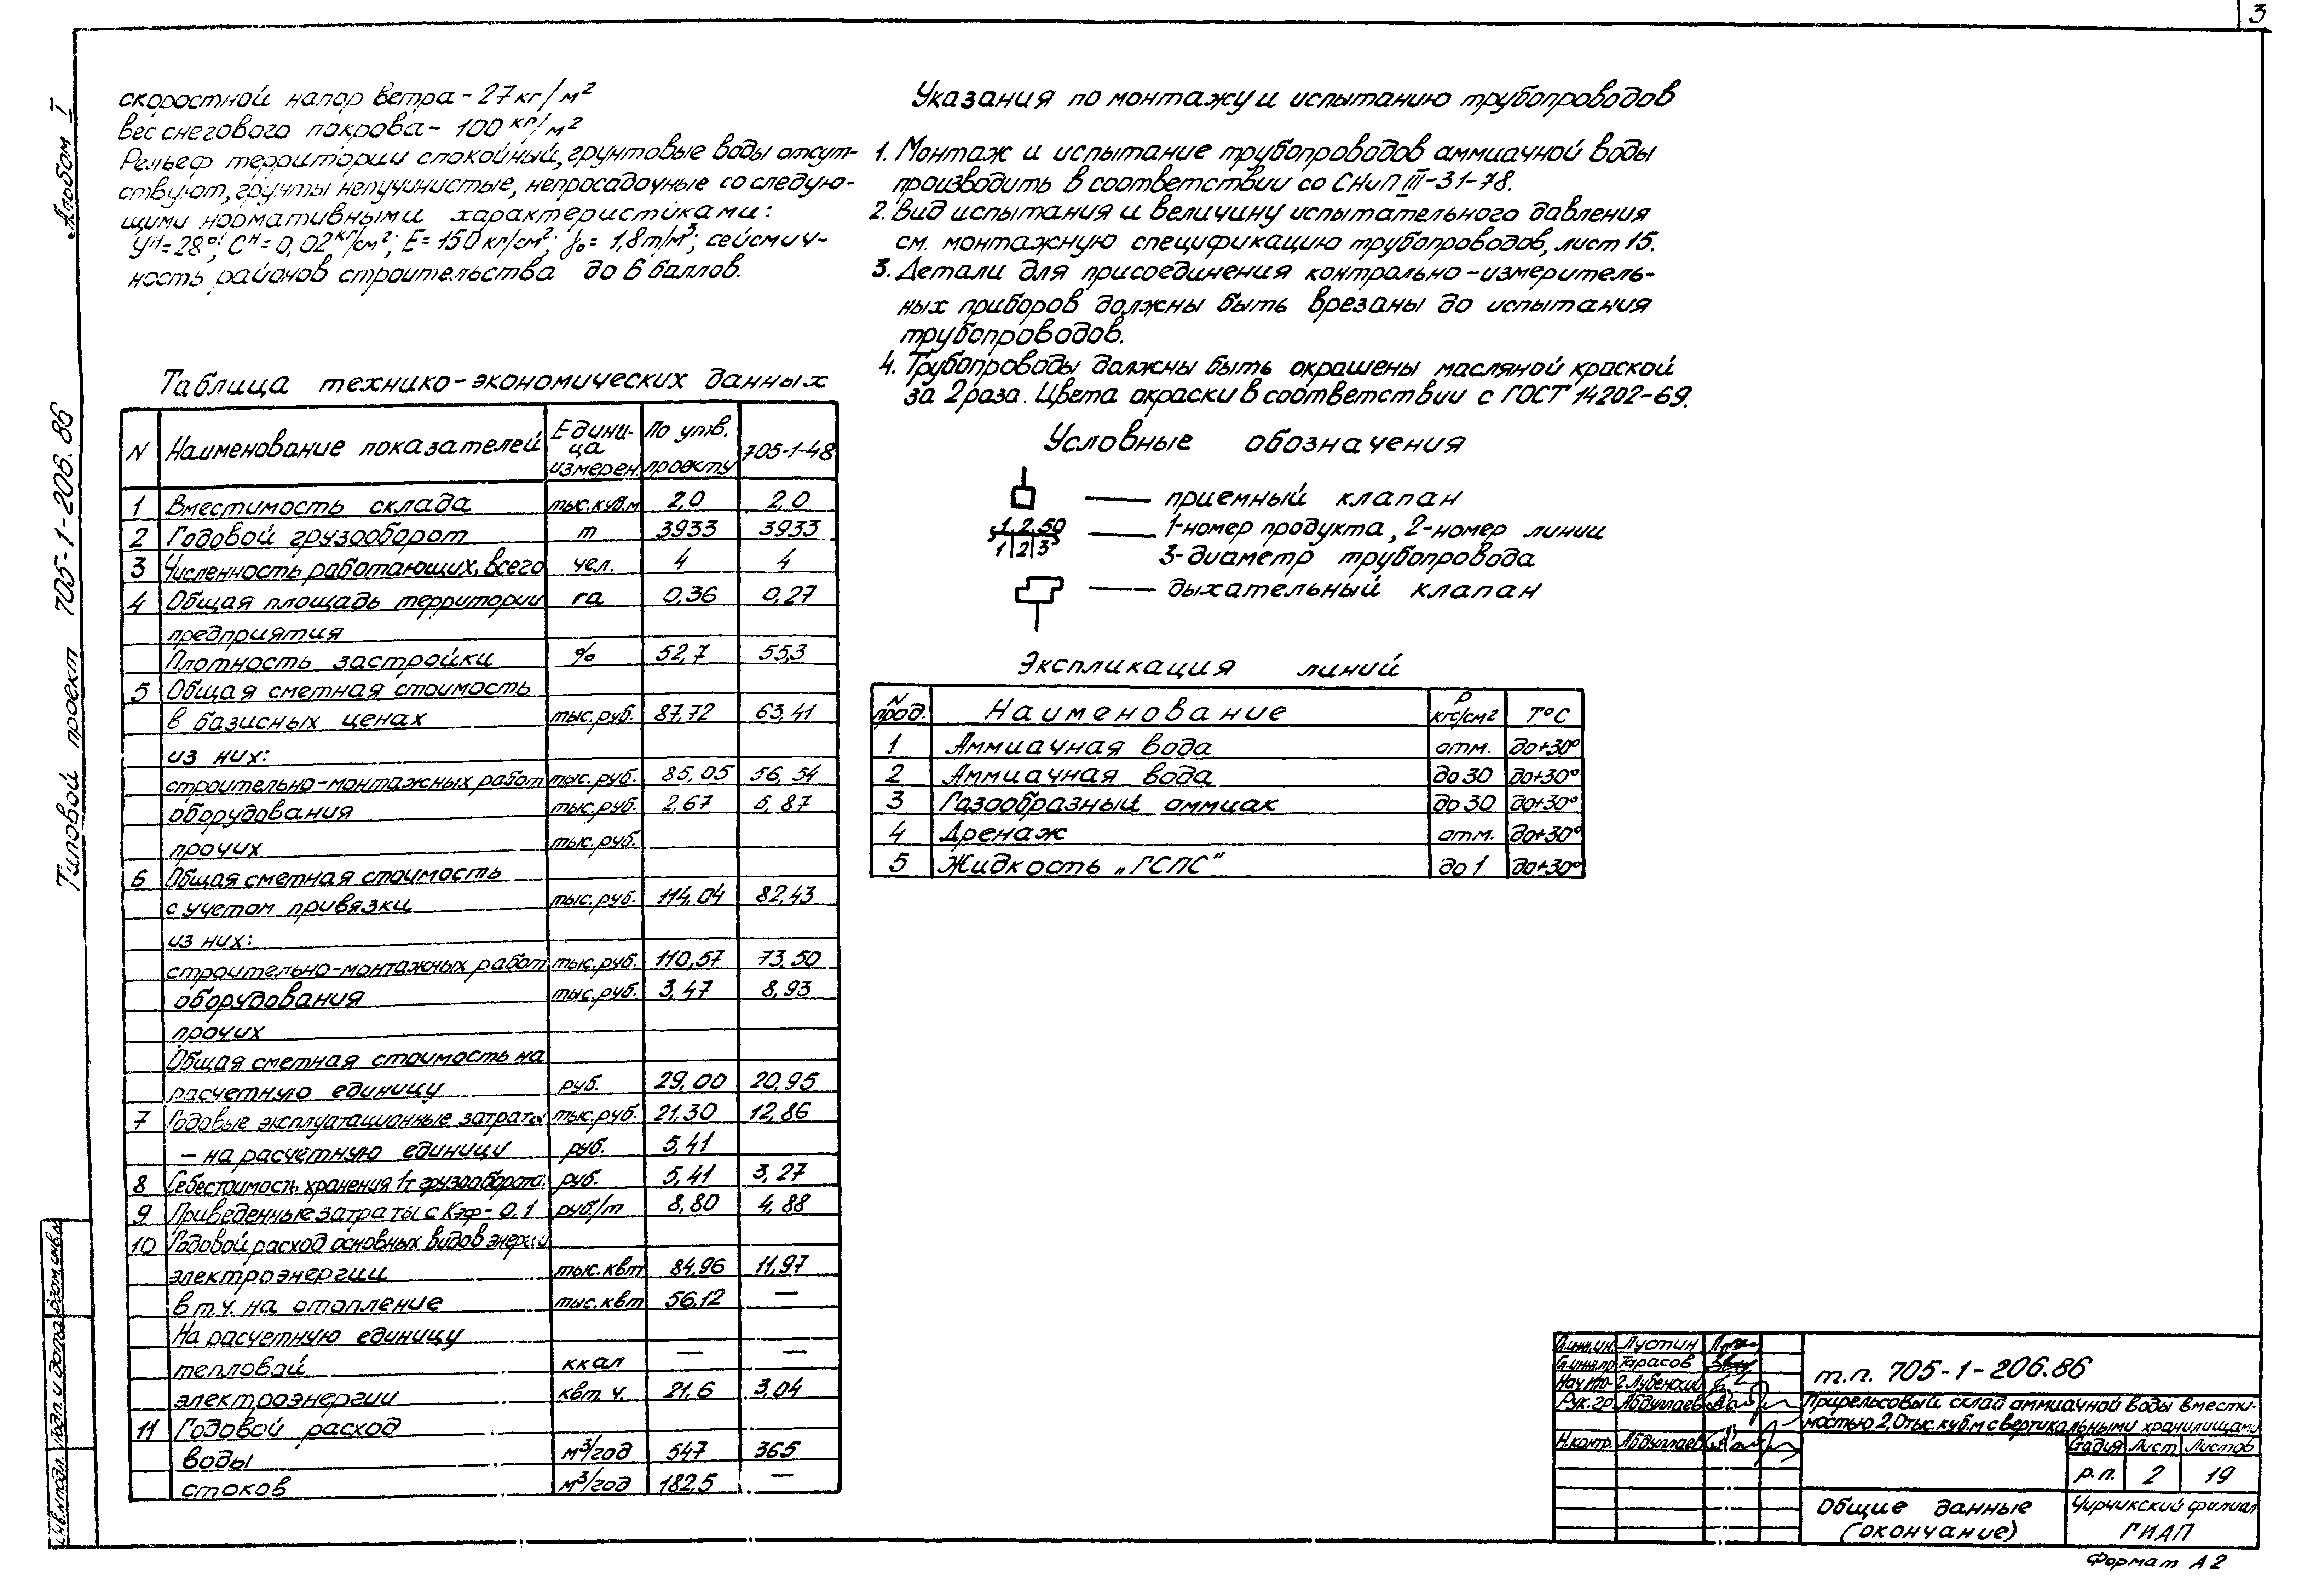 3
Альбом I
Типовой проект 705-1-206.86
скоростной напор ветра - 27 кг/м²
вес снегового покрова - 100 кг/м²
Рельеф территории спокойный, грунтовые воды отсут-
ствуют, грунты непучинистые, непросадочные со следую-
щими нормативными характеристиками:
φᴴ=28°; Cᴴ=0,02 кг/см²; E=150 кг/см²; γ₀=1,8т/м³; сейсмич-
ность районов строительства до 6 баллов.
Таблица технико-экономических данных
N | Наименование показателей | Единица измерен. | По утв. проекту | 705-1-48
1 | Вместимость склада | тыс.куб.м | 2,0 | 2,0
2 | Годовой грузооборот | т | 3933 | 3933
3 | Численность работающих, всего | чел. | 4 | 4
4 | Общая площадь территории | га | 0,36 | 0,27
предприятия
Плотность застройки | % | 52,7 | 55,3
5 | Общая сметная стоимость
в базисных ценах | тыс.руб. | 87,72 | 63,41
из них:
строительно-монтажных работ | тыс.руб. | 85,05 | 56,54
оборудования | тыс.руб. | 2,67 | 6,87
прочих | тыс.руб.
6 | Общая сметная стоимость
с учетом привязки | тыс.руб. | 114,04 | 82,43
из них:
строительно-монтажных работ | тыс.руб. | 110,57 | 73,50
оборудования | тыс.руб. | 3,47 | 8,93
прочих
Общая сметная стоимость на
расчетную единицу | руб. | 29,00 | 20,95
7 | Годовые эксплуатационные затраты | тыс.руб. | 21,30 | 12,86
— на расчетную единицу | руб. | 5,41
8 | Себестоимость хранения 1т грузооборота | руб. | 5,41 | 3,27
9 | Приведенные затраты с Кэф - 0,1 | руб./т | 8,80 | 4,88
10 | Годовой расход основных видов энергии
электроэнергии | тыс.квт | 84,96 | 11,97
в т.ч. на отопление | тыс.квт | 56,12 | —
На расчетную единицу
тепловой | ккал | — | —
электроэнергии | квт ч. | 21,6 | 3,04
11 | Годовой расход
воды | м³/год | 547 | 365
стоков | м³/год | 182,5 | —
Указания по монтажу и испытанию трубопроводов
1. Монтаж и испытание трубопроводов аммиачной воды
производить в соответствии со СНиП III-31-78.
2. Вид испытания и величину испытательного давления
см. монтажную спецификацию трубопроводов, лист 15.
3. Детали для присоединения контрольно-измеритель-
ных приборов должны быть врезаны до испытания
трубопроводов.
4. Трубопроводы должны быть окрашены масляной краской
за 2 раза. Цвета окраски в соответствии с ГОСТ 14202-69.
Условные обозначения
— приемный клапан
1.2.50 — 1-номер продукта, 2-номер линии
1 2 3 3-диаметр трубопровода
— дыхательный клапан
Экспликация линий
N прод. | Наименование | Р кгс/см² | Т°С
1 | Аммиачная вода | атм. | до+30°
2 | Аммиачная вода | до 30 | до+30°
3 | Газообразный аммиак | до 30 | до+30°
4 | Дренаж | атм. | до+30°
5 | Жидкость „ГСПС" | до 1 | до+30°
Гл.инж.ин. Лустин
Гл.инж.пр. Тарасов
Нач.мто-2 Лубенский
Рук.гр. Абдуллаев
Н.контр. Абдуллаев
т.п. 705-1-206.86
Прирельсовый склад аммиачной воды вмести-
мостью 2,0 тыс. куб.м с вертикальными хранилищами
Стадия | Лист | Листов
р.п. | 2 | 19
Общие данные
(окончание)
Чирчикский филиал
ГИАП
Формат А2
Инв.N подл. Подп. и дата Взам.инв.N